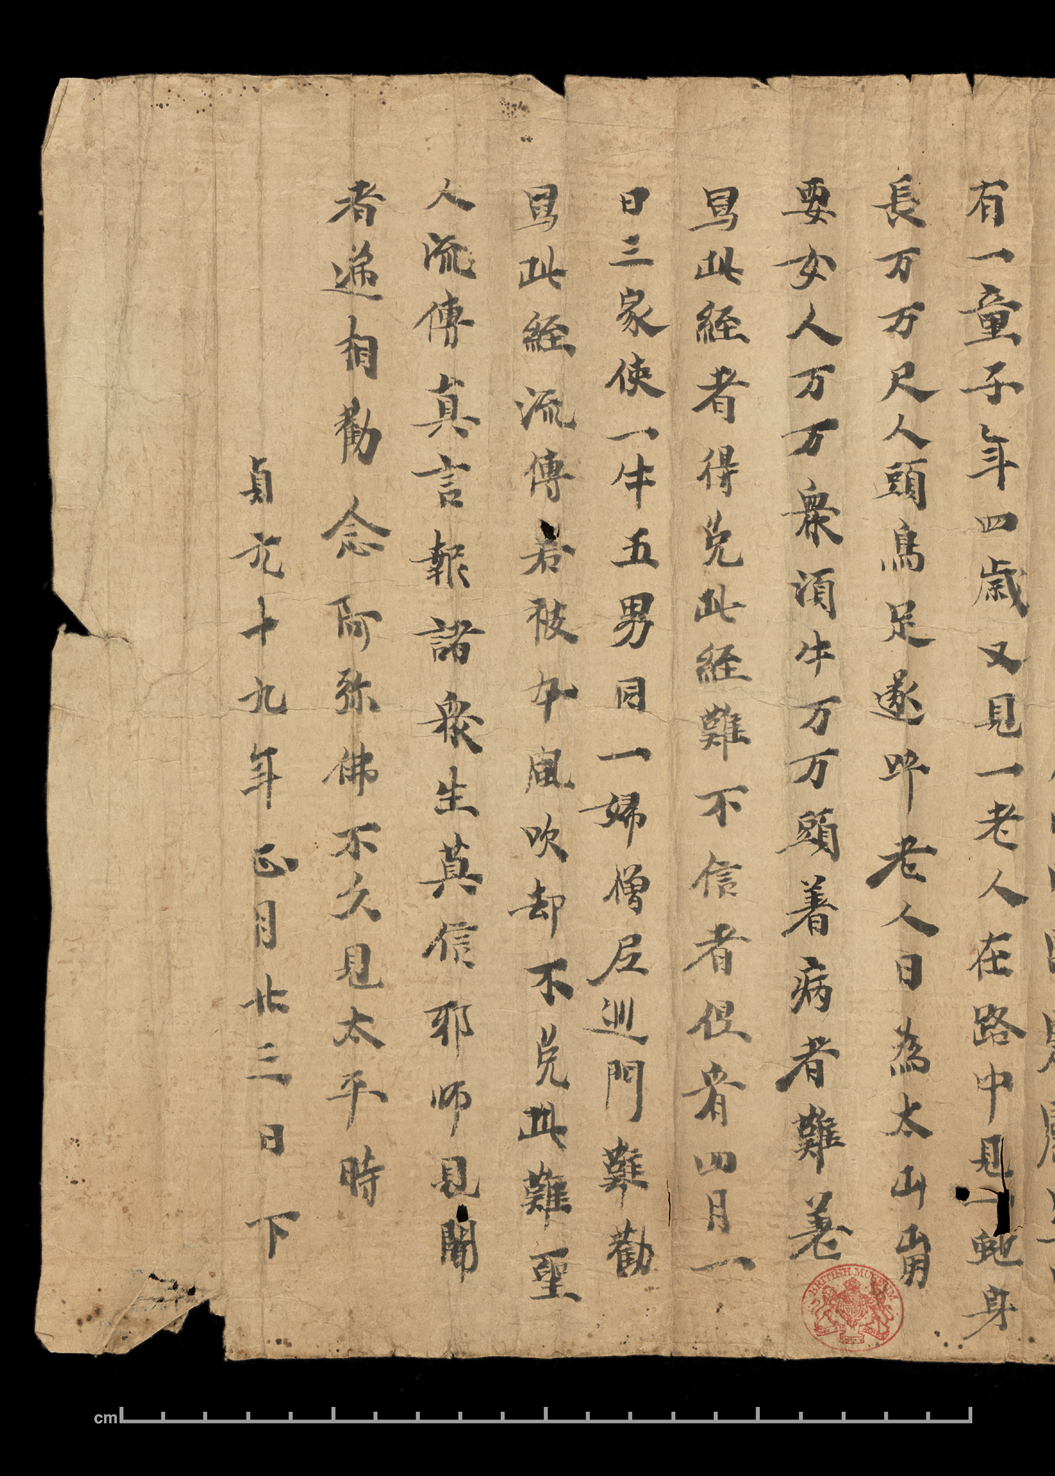 有一童子年四歲又見一老人在路中見一虵身
長万万尺人頭鳥足遂呼老人曰為太山崩
要女人万万衆須牛万万頭著病者難差
寫此経者得免此経難不信者但看四月一
日三家使一牛五男同一婦僧尼巡門難勸
寫此経流傳若被卒風吹却不免此難聖
人流傳真言報諸衆生莫信耶師見聞
者递相勸念阿弥佛不久見太平時
貞元十九年正月廿三日下
BRITISH MUSEUM
cm